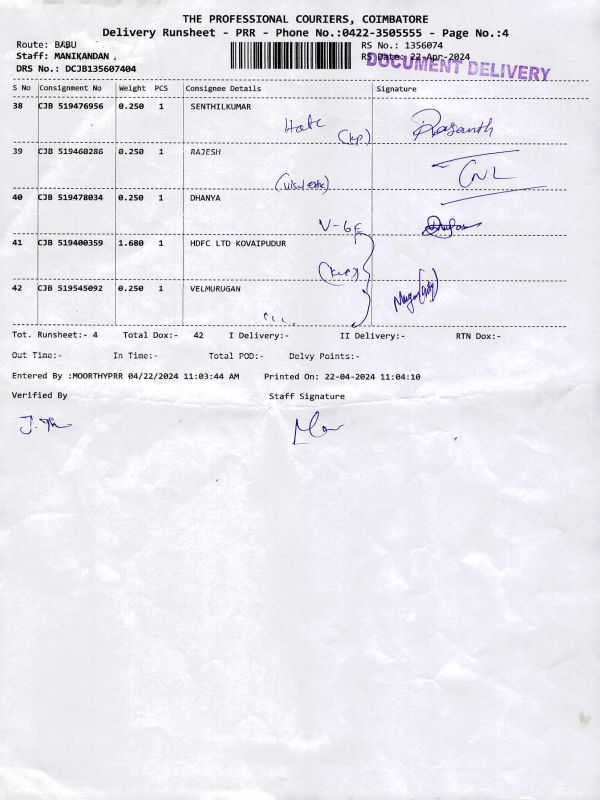 THE PROFESSIONAL COURIERS, COIMBATORE
Delivery Runsheet - PRR - Phone No.:0422-3505555 - Page No.:4
Route: BABU
RS No.: 1356074
Staff: MANIKANDAN ,
RS Date: 22-Apr-2024
DOCUMENT DELIVERY
DRS No.: DCJB135607404
S No Consignment No Weight PCS Consignee Details Signature
38 CJB 519476956 0.250 1 SENTHILKUMAR
(kp) Prasanth
39 CJB 519460286 0.250 1 RAJESH
40 CJB 519478034 0.250 1 DHANYA
V-6F
41 CJB 519400359 1.680 1 HDFC LTD KOVAIPUDUR
42 CJB 519545092 0.250 1 VELMURUGAN
Tot. Runsheet:- 4 Total Dox:- 42 I Delivery:- II Delivery:- RTN Dox:-
Out Time:- In Time:- Total POD:- Delvy Points:-
Entered By :MOORTHYPRR 04/22/2024 11:03:44 AM Printed On: 22-04-2024 11:04:10
Verified By Staff Signature